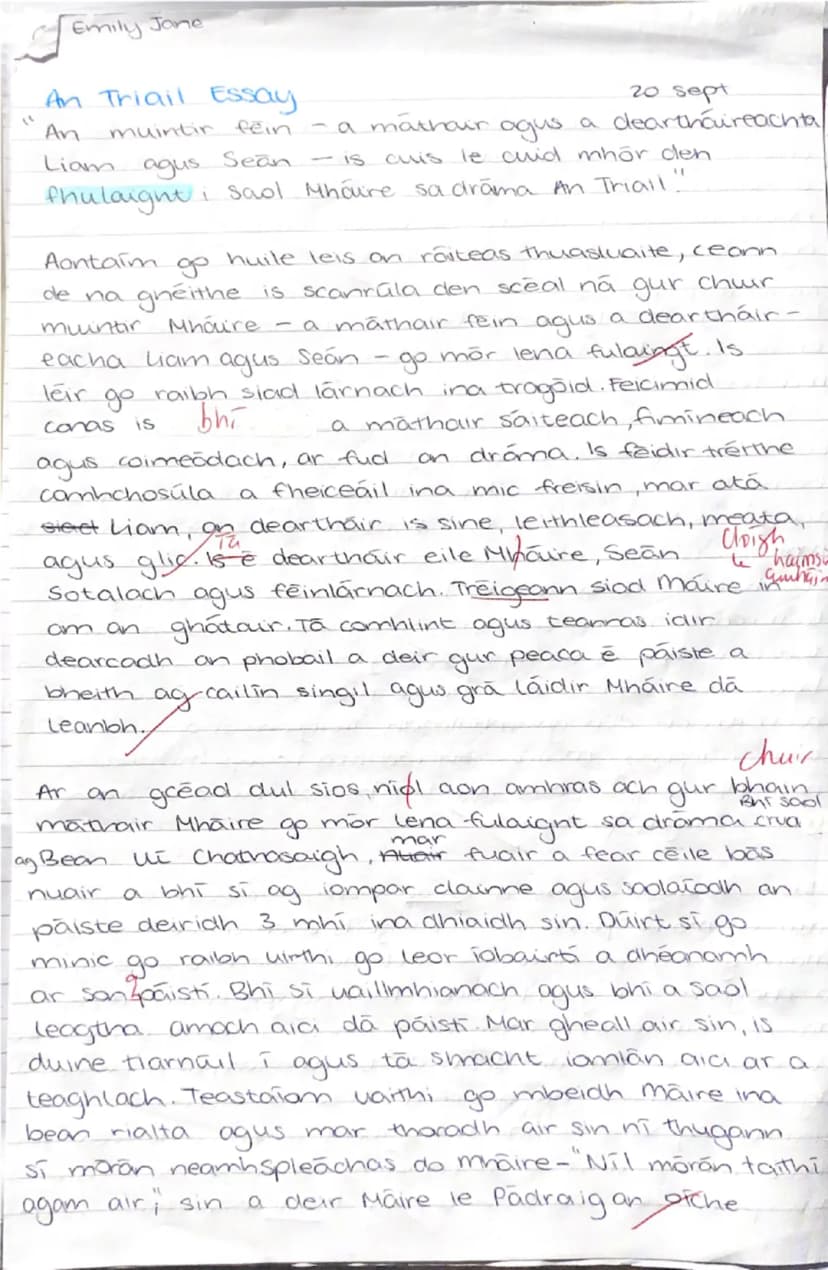 Emily Jane
An Triail Essay 20 sept
"An muintir féin - a máthair agus a deartháireachta
Liam agus Seán - is cuis le cuid mhór den
fhulaignt i saol Mháire sa dráma An Triail."
Aontaím go huile leis an ráiteas thuasluaite, ceann
de na gnéithe is scanrúla den scéal ná gur chuir
muintir Mháire - a máthair féin agus a deartháir-
eacha Liam agus Seán - go mór lena fulaingt. Is
léir go raibh siad lárnach ina tragóid. Feicimid
conas is bhí a máthair sáiteach, fimíneach
agus coimeádach, ar fud an dráma. Is féidir tréithe
comhchosúla a fheiceáil ina mic freisin, mar atá
Liam, an deartháir is sine, leithleasach, meata,
agus glic. Is é Tá deartháir eile Mháire, Seán Cloígh le haimsir
Sotalach agus féinlárnach. Tréigeann siad Máire in
am an ghátair. Tá comhlint agus teannas idir
dearcadh an phobail a deir gur peaca é páiste a
bheith ag cailín singil agus grá láidir Mháire dá
leanbh.
chuir
Ar an gcéad dul síos, níl aon amhras ach gur bhain
máthair Mháire go mór lena fulaignt sa dráma. Bhí saol crua
ag Bean Uí Chathasaigh, mar fuair a fear céile bás
nuair a bhí sí ag iompar clainne agus saolaíodh an
páiste deiridh 3 mhí ina dhiaidh sin. Dúirt sí go
minic go raibh uirthi go leor íobairtí a dhéanamh
ar son a páistí. Bhí sí uaillmhianach agus bhí a saol
leagtha amach aici dá páistí. Mar gheall air sin, is
duine tiarnúil í agus tá smacht iomlán aici ar a
teaghlach. Teastaíonn uaithi go mbeidh Máire ina
bean rialta agus mar thoradh air sin ní thugann
sí mórán neamhspleáchas do Mháire - "Níl mórán taithí
agam air," sin a deir Máire le Pádraig an oíche